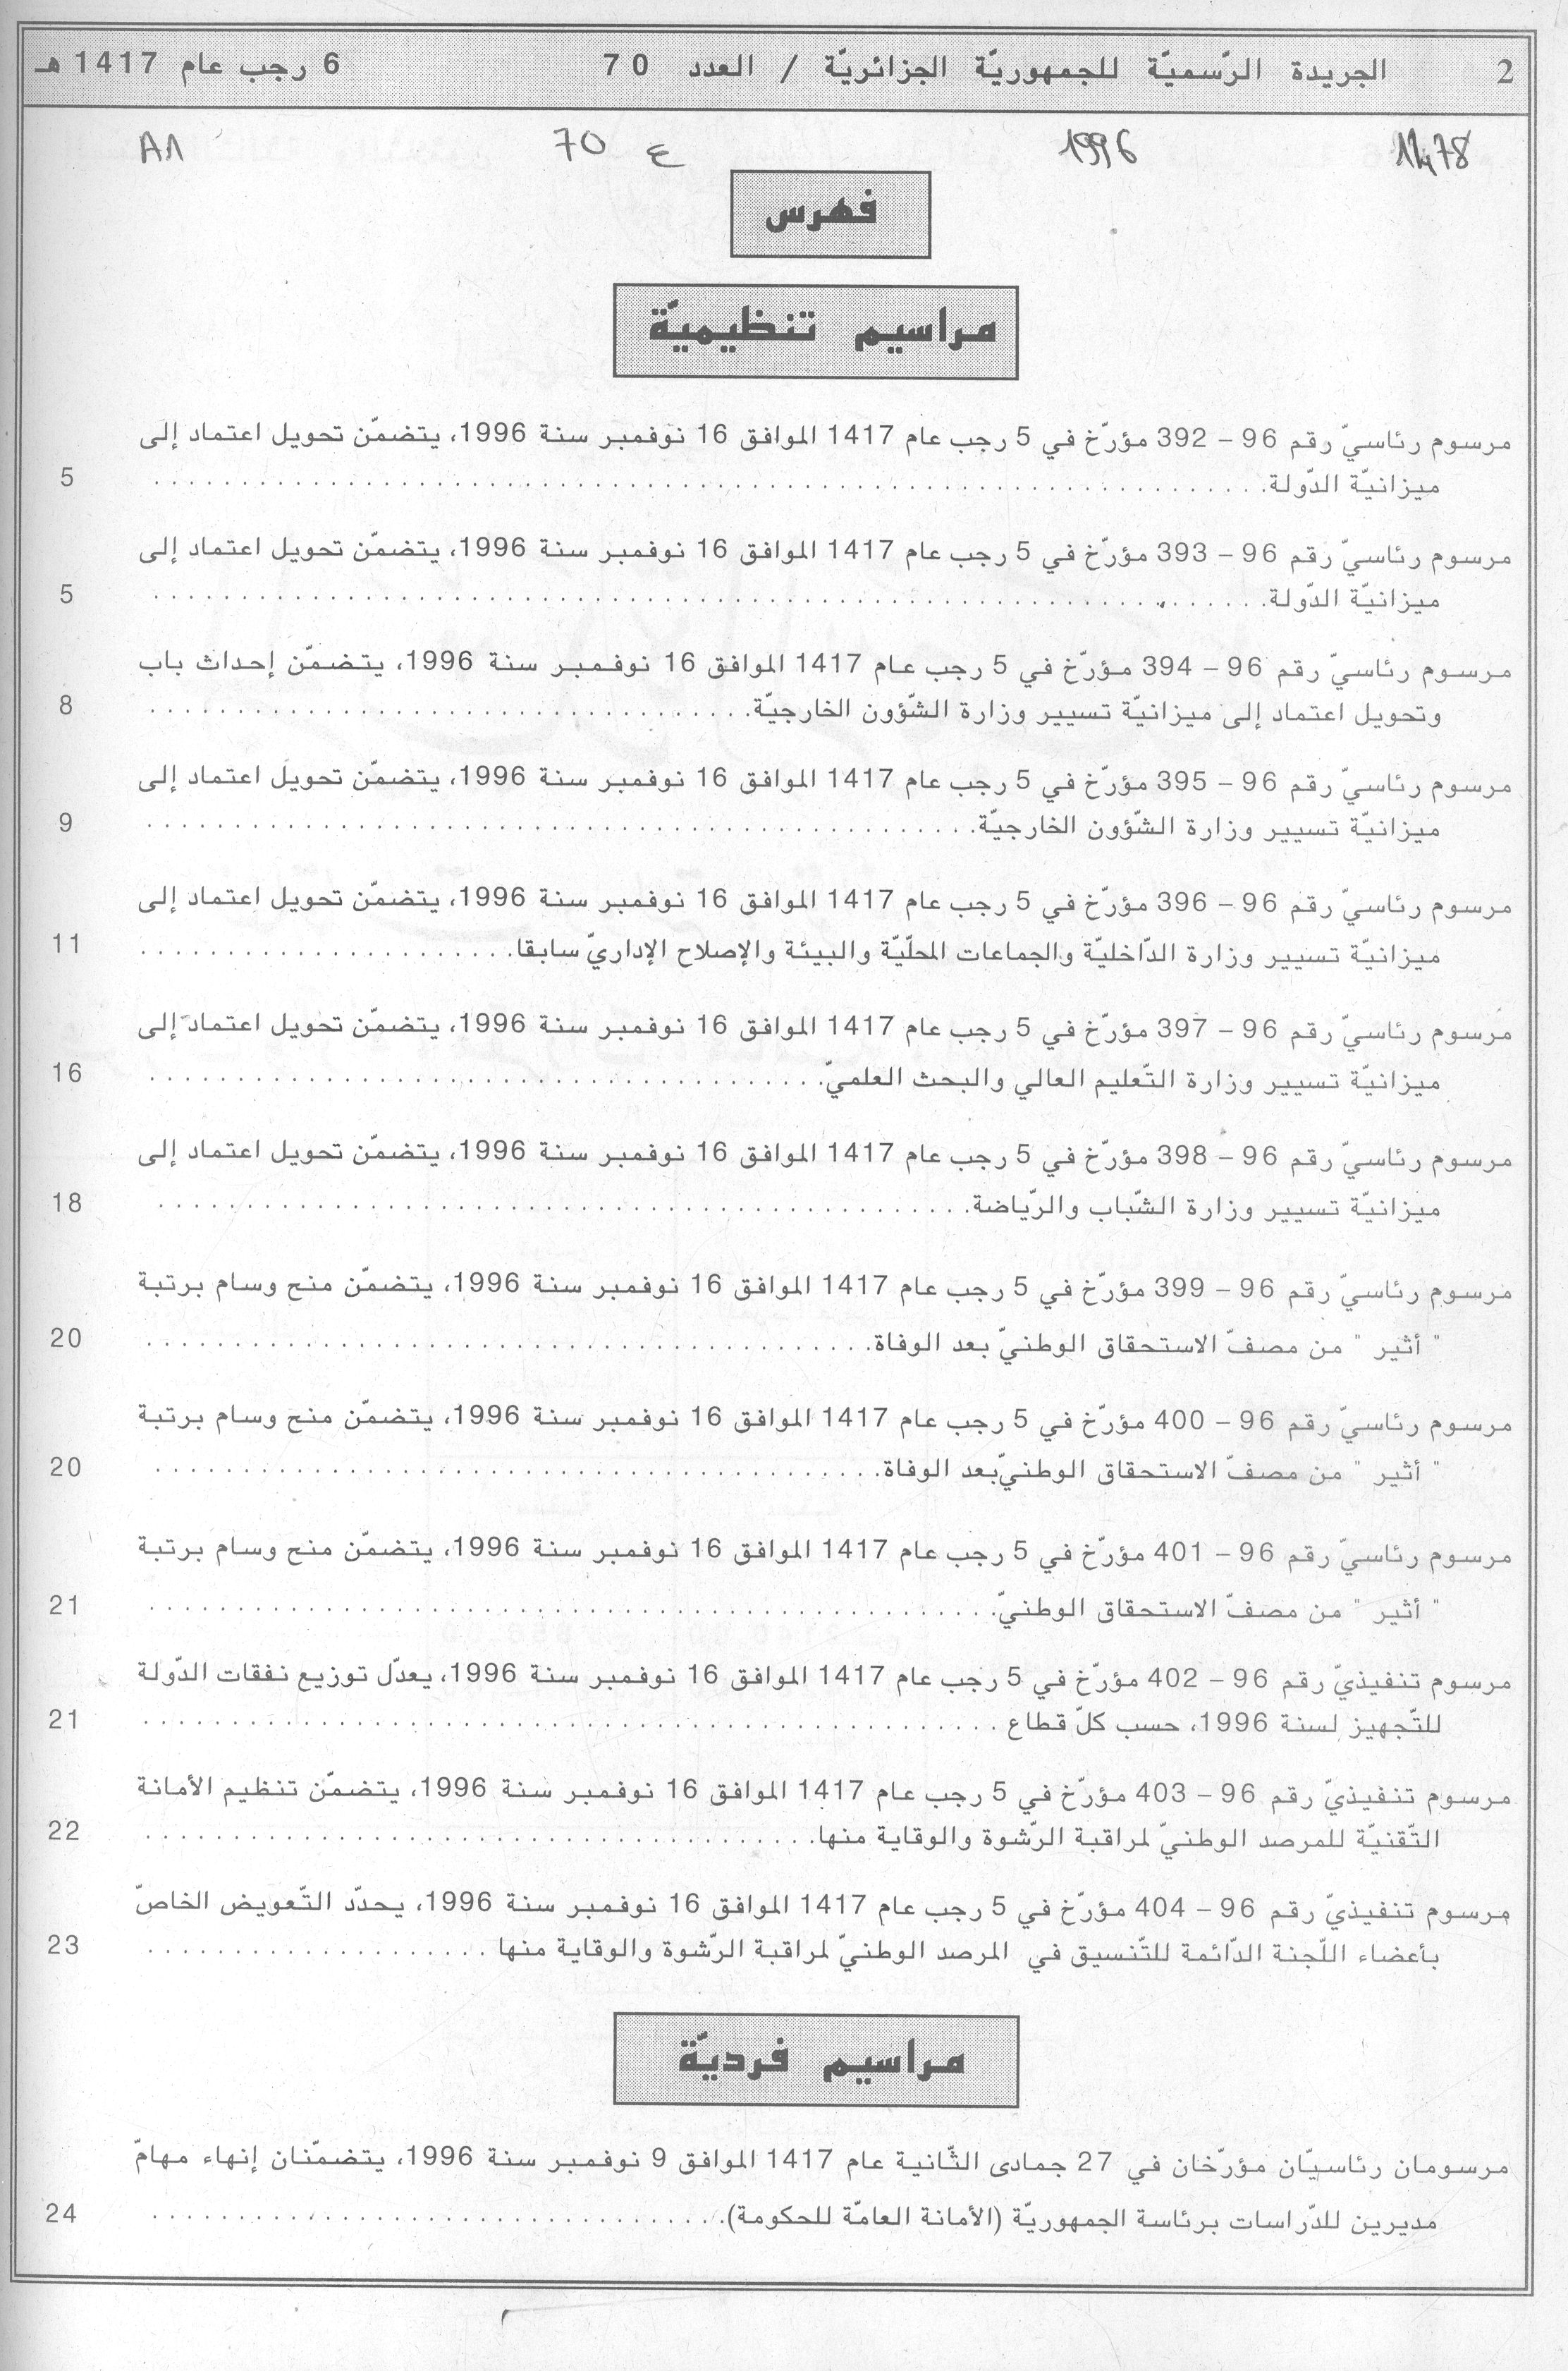 2 الجريدة الرّسميّة للجمهوريّة الجزائريّة / العدد 70 6 رجب عام 1417 هـ
1996 ع 70
فهرس
مراسيم تنظيميّة
مرسوم رئاسيّ رقم 96 – 392 مؤرّخ في 5 رجب عام 1417 الموافق 16 نوفمبر سنة 1996، يتضمّن تحويل اعتماد إلى
ميزانيّة الدّولة. 5
مرسوم رئاسيّ رقم 96 – 393 مؤرّخ في 5 رجب عام 1417 الموافق 16 نوفمبر سنة 1996، يتضمّن تحويل اعتماد إلى
ميزانيّة الدّولة. 5
مرسوم رئاسيّ رقم 96 – 394 مؤرّخ في 5 رجب عام 1417 الموافق 16 نوفمبر سنة 1996، يتضمّن إحداث باب
وتحويل اعتماد إلى ميزانيّة تسيير وزارة الشّؤون الخارجيّة. 8
مرسوم رئاسيّ رقم 96 – 395 مؤرّخ في 5 رجب عام 1417 الموافق 16 نوفمبر سنة 1996، يتضمّن تحويل اعتماد إلى
ميزانيّة تسيير وزارة الشّؤون الخارجيّة. 9
مرسوم رئاسيّ رقم 96 – 396 مؤرّخ في 5 رجب عام 1417 الموافق 16 نوفمبر سنة 1996، يتضمّن تحويل اعتماد إلى
ميزانيّة تسيير وزارة الدّاخليّة والجماعات المحلّيّة والبيئة والإصلاح الإداريّ سابقا. 11
مرسوم رئاسيّ رقم 96 – 397 مؤرّخ في 5 رجب عام 1417 الموافق 16 نوفمبر سنة 1996، يتضمّن تحويل اعتماد إلى
ميزانيّة تسيير وزارة التّعليم العالي والبحث العلميّ. 16
مرسوم رئاسيّ رقم 96 – 398 مؤرّخ في 5 رجب عام 1417 الموافق 16 نوفمبر سنة 1996، يتضمّن تحويل اعتماد إلى
ميزانيّة تسيير وزارة الشّباب والرّياضة. 18
مرسوم رئاسيّ رقم 96 – 399 مؤرّخ في 5 رجب عام 1417 الموافق 16 نوفمبر سنة 1996، يتضمّن منح وسام برتبة
" أثير " من مصفّ الاستحقاق الوطنيّ بعد الوفاة. 20
مرسوم رئاسيّ رقم 96 – 400 مؤرّخ في 5 رجب عام 1417 الموافق 16 نوفمبر سنة 1996، يتضمّن منح وسام برتبة
" أثير " من مصفّ الاستحقاق الوطنيّ بعد الوفاة. 20
مرسوم رئاسيّ رقم 96 – 401 مؤرّخ في 5 رجب عام 1417 الموافق 16 نوفمبر سنة 1996، يتضمّن منح وسام برتبة
" أثير " من مصفّ الاستحقاق الوطنيّ. 21
مرسوم تنفيذيّ رقم 96 – 402 مؤرّخ في 5 رجب عام 1417 الموافق 16 نوفمبر سنة 1996، يعدّل توزيع نفقات الدّولة
للتّجهيز لسنة 1996، حسب كلّ قطاع 21
مرسوم تنفيذيّ رقم 96 – 403 مؤرّخ في 5 رجب عام 1417 الموافق 16 نوفمبر سنة 1996، يتضمّن تنظيم الأمانة
التّقنيّة للمرصد الوطنيّ لمراقبة الرّشوة والوقاية منها. 22
مرسوم تنفيذيّ رقم 96 – 404 مؤرّخ في 5 رجب عام 1417 الموافق 16 نوفمبر سنة 1996، يحدّد التّعويض الخاصّ
بأعضاء اللّجنة الدّائمة للتّنسيق في المرصد الوطنيّ لمراقبة الرّشوة والوقاية منها 23
مراسيم فرديّة
مرسومان رئاسيّان مؤرّخان في 27 جمادى الثّانية عام 1417 الموافق 9 نوفمبر سنة 1996، يتضمّنان إنهاء مهامّ
مديرين للدّراسات برئاسة الجمهوريّة (الأمانة العامّة للحكومة). 24